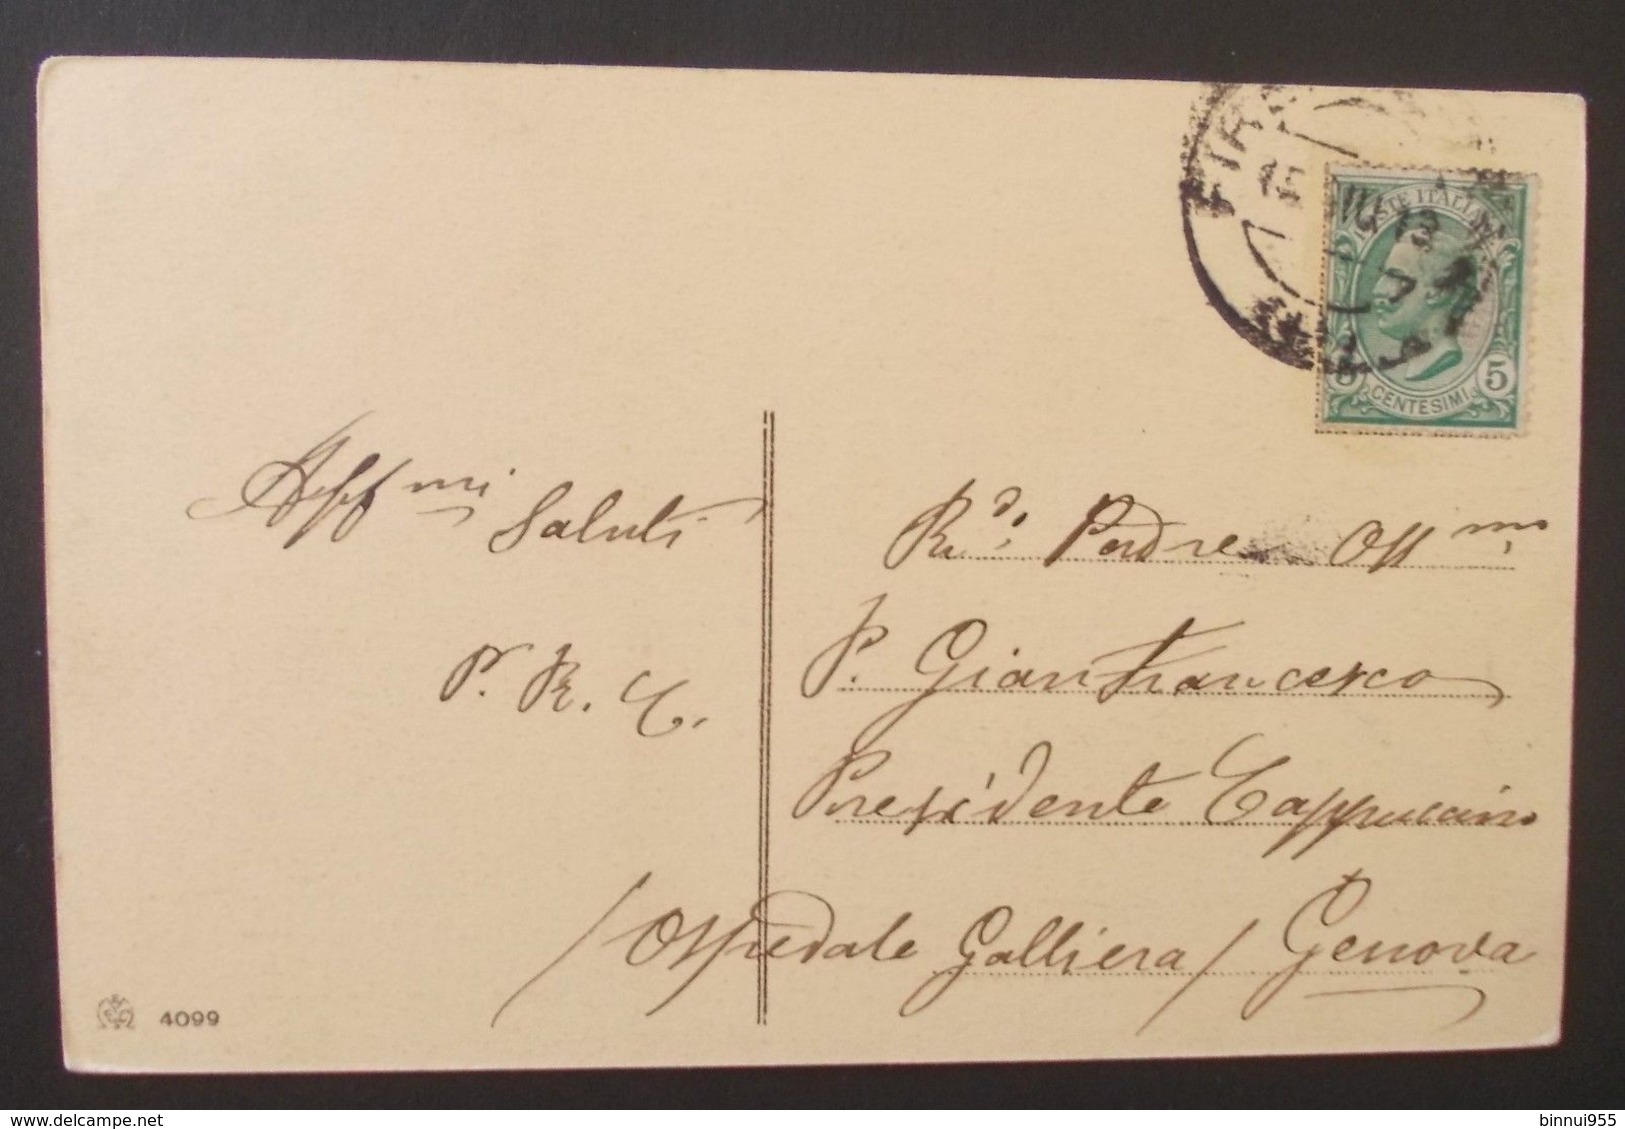 FIRE
15 GIU 13
POSTE ITALIANE
5 CENTESIMI 5
Aff mi
Saluti
P. R. C.
R.do Padre Oss mo
P. Gianfrancesco
Presidente Cappuccini
/Ospedale Galliera/ Genova
4099
binnui955
delcampe.net